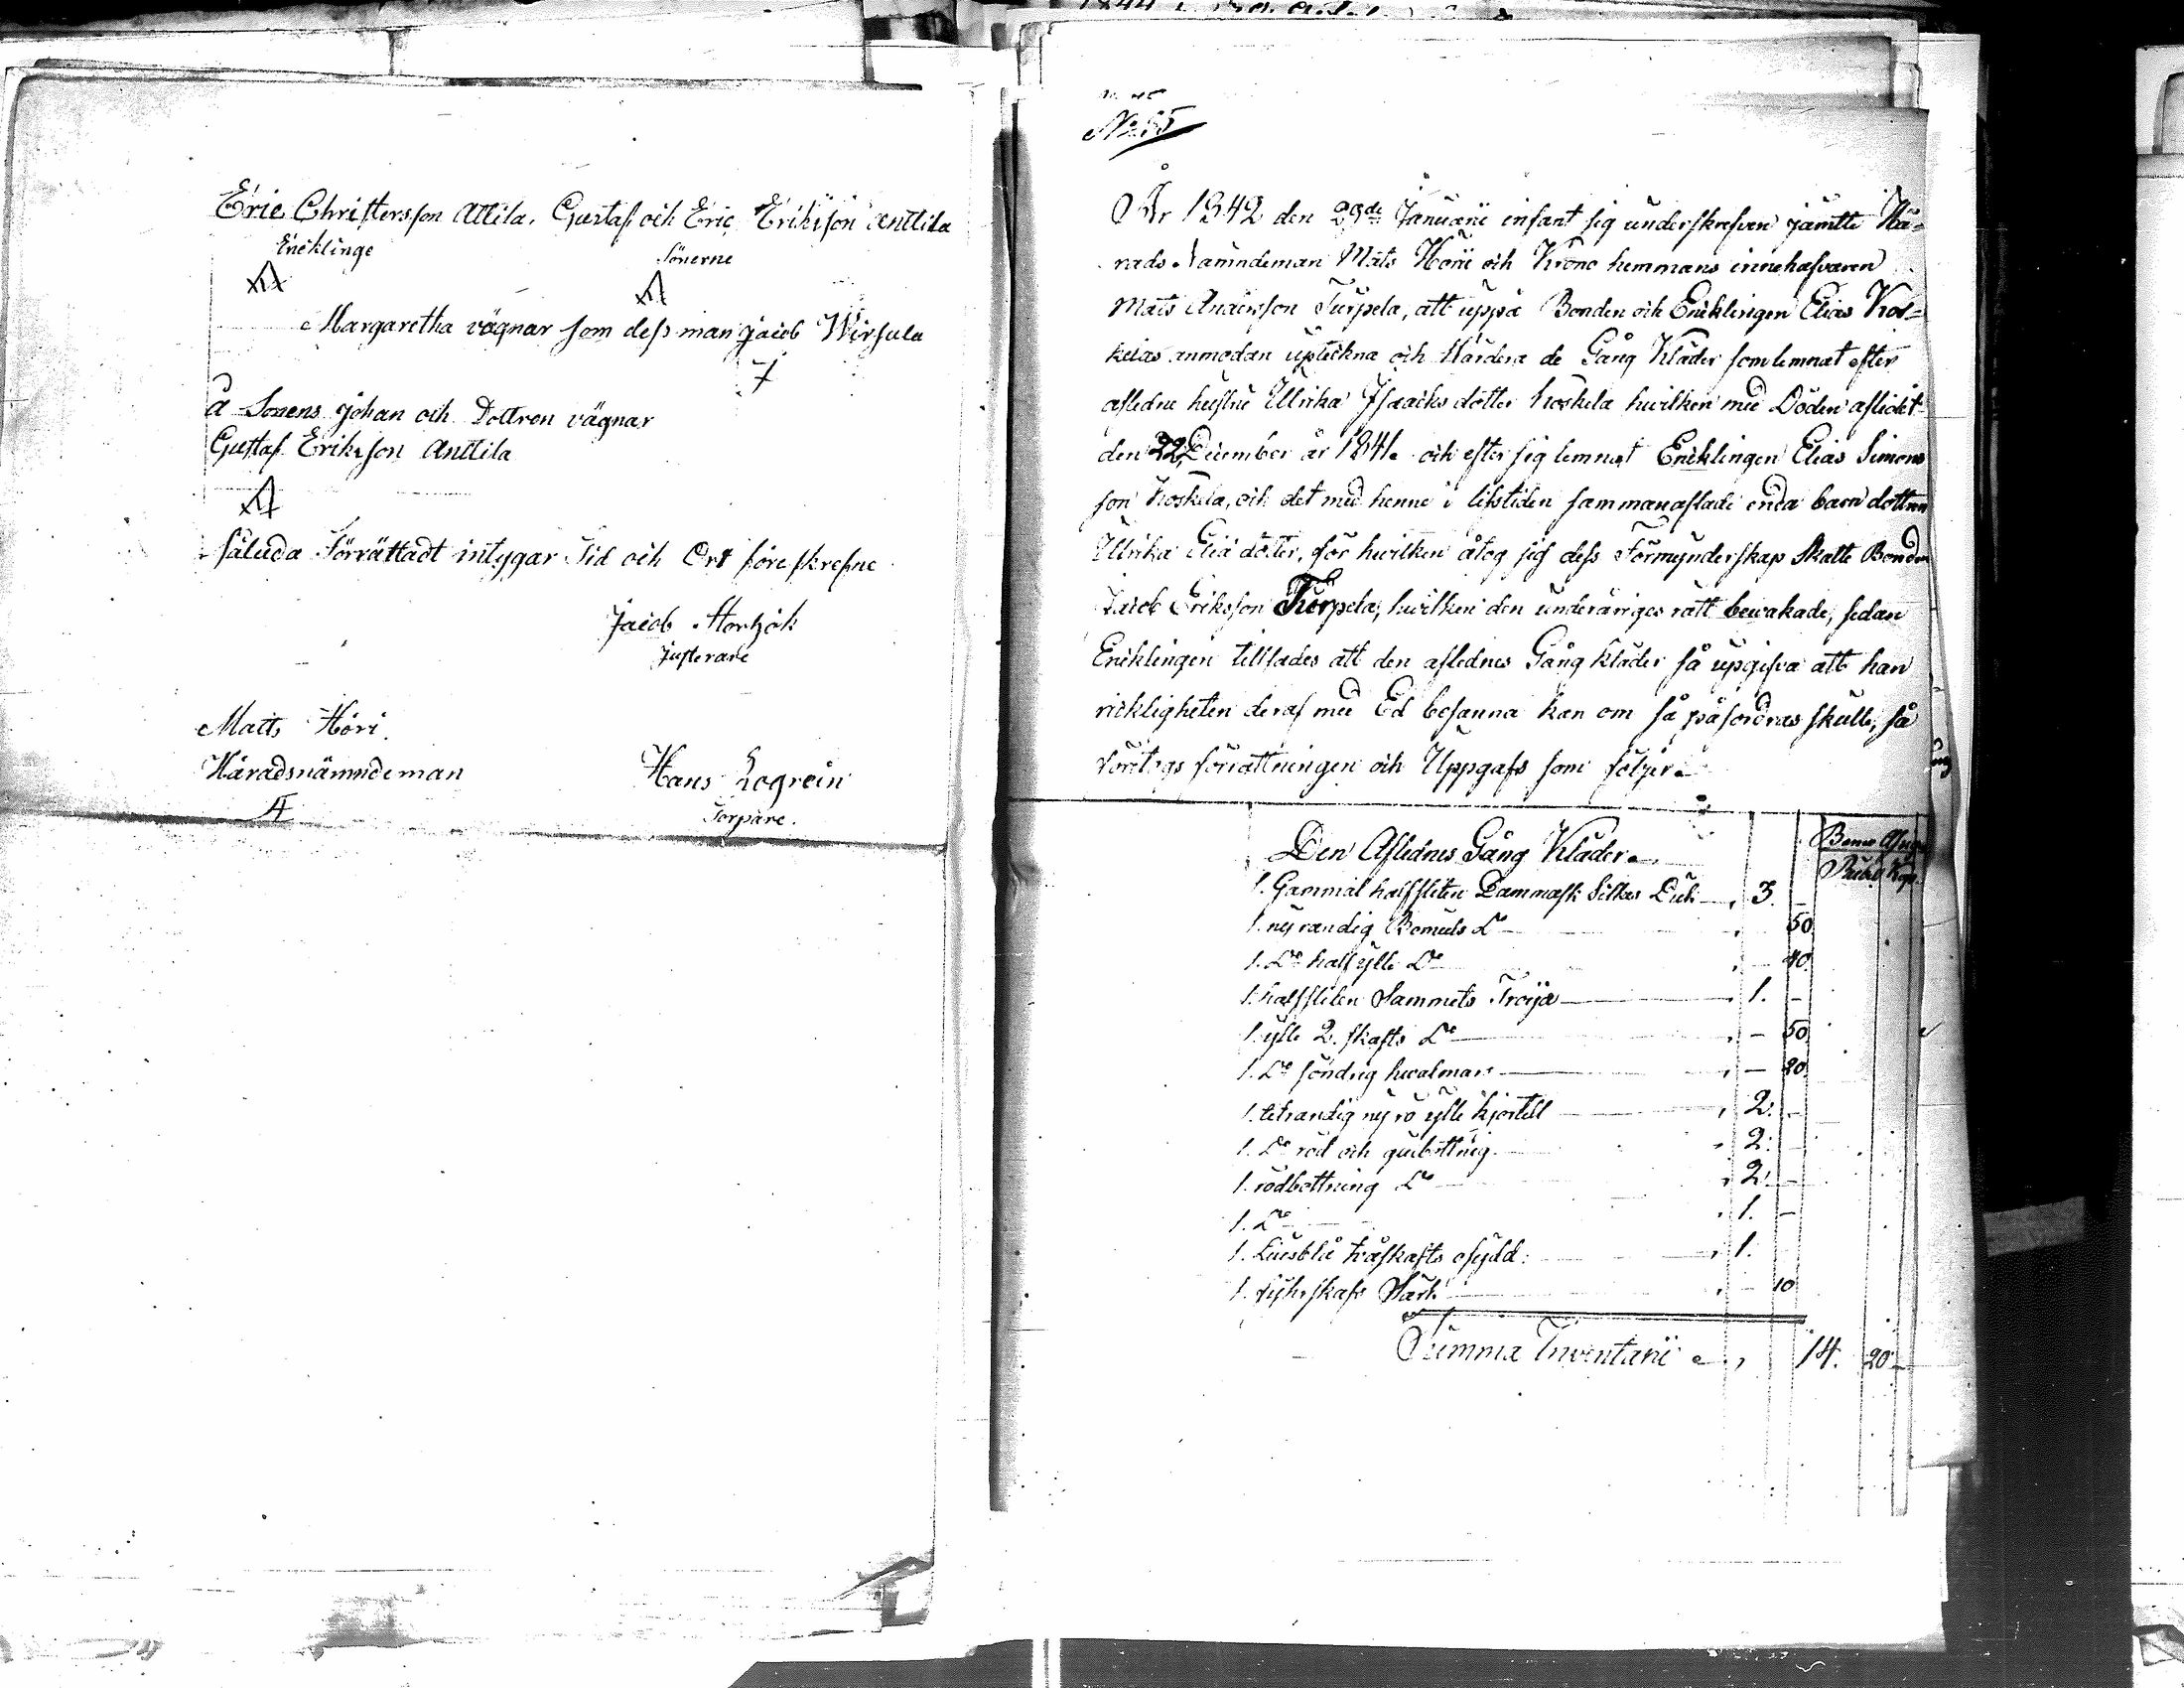 Eric Christersson Attila. Gustaf och Eric Eriksson Anttila
Encklinge
Sönerne
Margaretha vägnar som dess man Jacob Wirsula
å Sonens Johan och Dottren vägnar
Gustaf Eriksson Anttila
Såluda Förrättadt intygar Tid och Ort föreskrefne
Jacob
Justerare
Matts Höri
Häradsnämndeman
Hans Logrein
Torpare.
No 65
År 1842 den 29de Januarii infant sig underskrefven jämtte Hä=
rads Nämndeman Mats Höri och Krono hemmans innehafvaren
Mats Andersson Turpela, att uppå Bonden och Encklingen Elias Kos=
kelas anmodan uptekna och Värdera de Gång Kläder som lemnat efter
afledne hustru Ullrika Isaacks dotter Koskela hvilken med Döden aflidit
den 22 December år 1841. och efter sig lemnat Encklingen Elias Simons
son Koskela, och det med henne i lifstiden sammanaflade enda barn dottren
Ullrika Elia doter, för hvilken åtog sig dess Förmynderskap Skatte Bonden
Jacob Eriksson Turpela, hvilken den underåriges rätt bewakade, sedan
Encklingen tillsades att den aflednes Gång kläder så upgifva att han
ricktigheten deraf med Ed besanna kan om så påfordras skulle, så
företogs förrättningen och Uppgafs som följer
Den Aflednes Gång Kläder
Banco Assig
Rubel Kop.
1. Gammal halfsliten Dammask Silkes Duk 3. -
1. ny randig Bomuls Do 50.
1. Do half ylle Do - 40.
1. halfsliten Sammets Tröija 1. -
1. ylle 2. skafts Do - 50.
1. Do söndrig hwalmars - 20.
1. tetrandig ny rö ylle kjortell 2. -
1. Do röd och gulbottnig 2. -
1. rödbottning Do 2. -
1. Do 1. -
1. Liusblå tvåskafts osydd. 1.
1. fyhrskafs Särk - 10
Summa Inventarii 14. 20